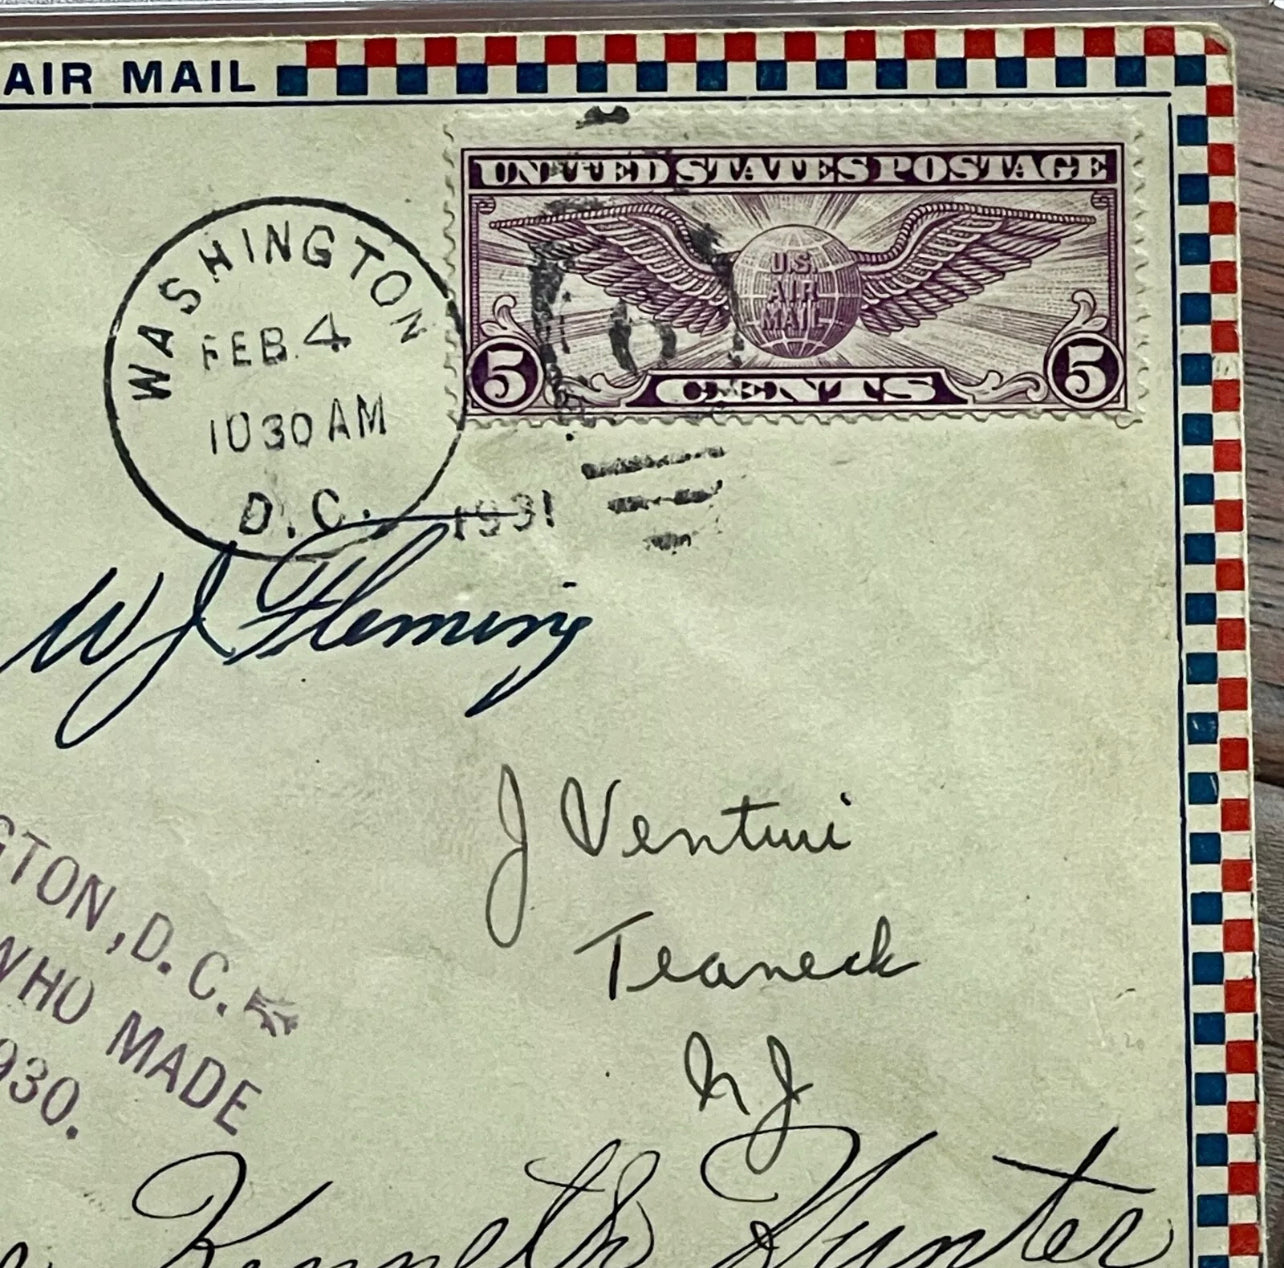 AIR MAIL
UNITED STATES POSTAGE
U.S.
AIR
MAIL
5 CENTS 5
WASHINGTON
FEB. 4
10 30 AM
D.C.
1931
W J Fleming
J Venturi
Teaneck
N J
GTON, D.C.
WHO MADE
930.
Kenneth Hunter